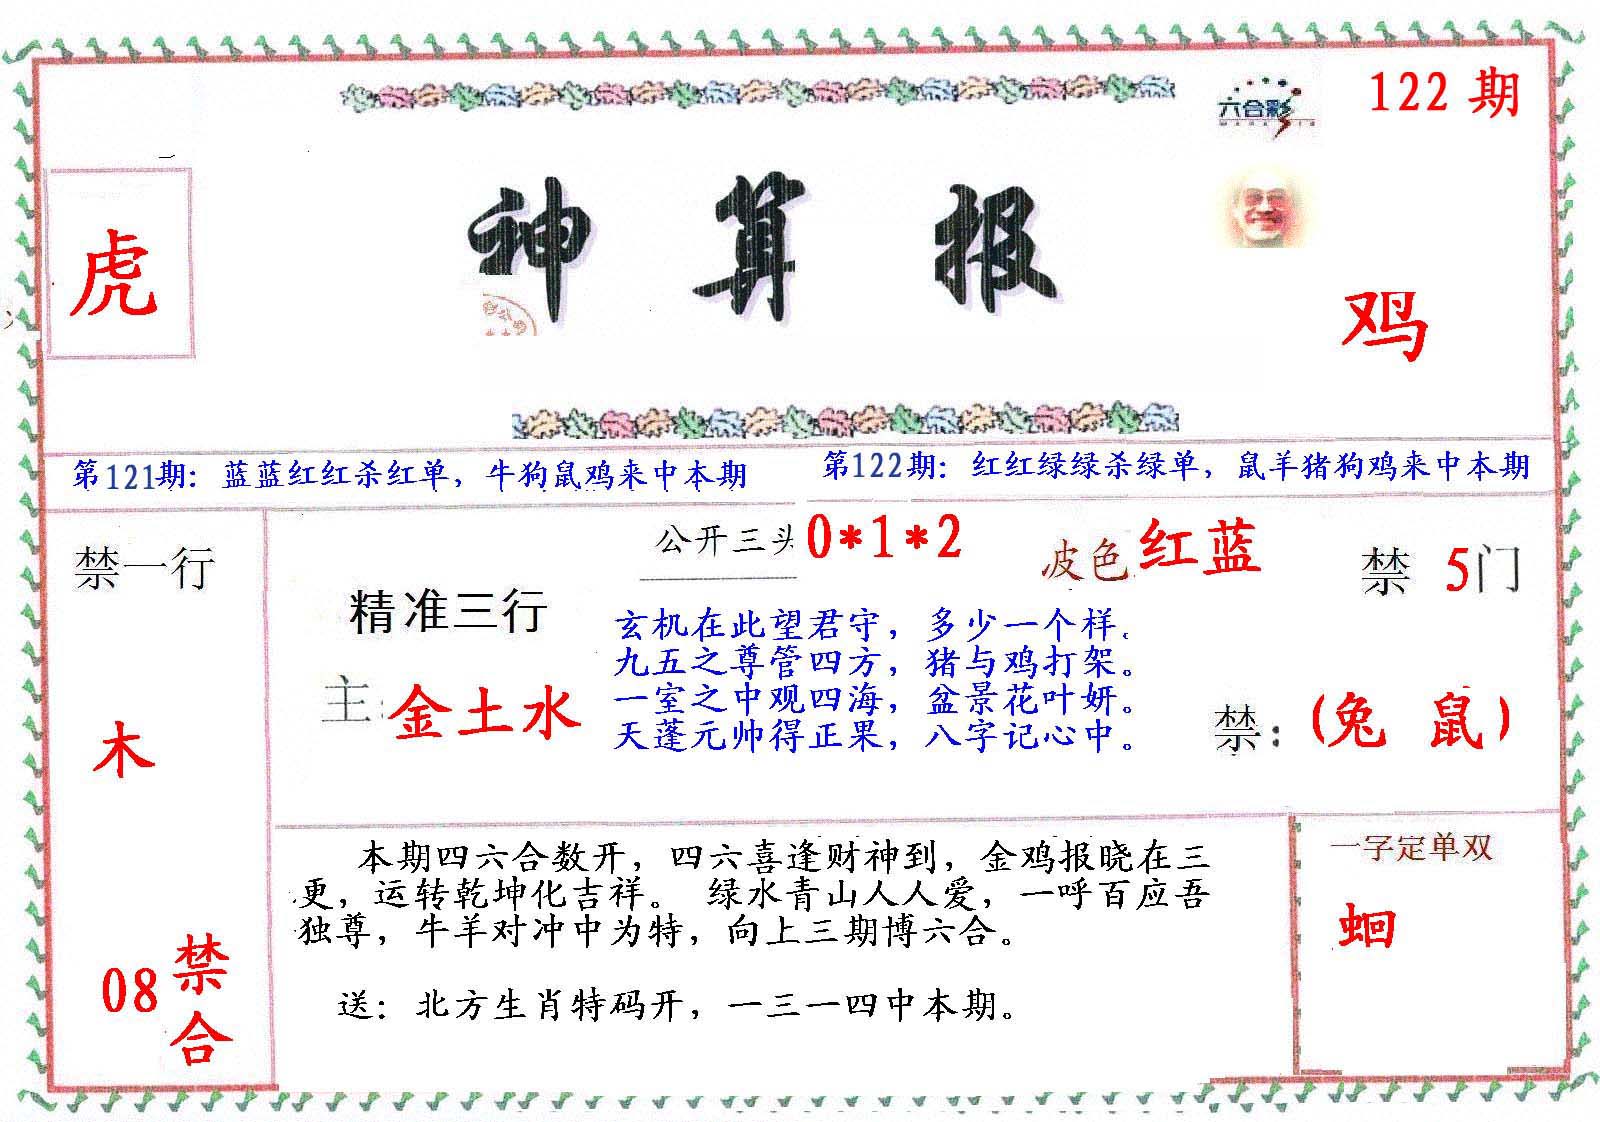 六合彩
122 期
虎
神算报
鸡
第121期：蓝蓝红红杀红单，牛狗鼠鸡来中本期
第122期：红红绿绿杀绿单，鼠羊猪狗鸡来中本期
禁一行
木
08
禁
合
公开三头
0*1*2
波色
红蓝
禁 5门
精准三行
主：金土水
玄机在此望君守，多少一个样。
九五之尊管四方，猪与鸡打架。
一室之中观四海，盆景花叶妍。
天蓬元帅得正果，八字记心中。
禁：(兔 鼠)
本期四六合数开，四六喜逢财神到，金鸡报晓在三
更，运转乾坤化吉祥。 绿水青山人人爱，一呼百应吾
独尊，牛羊对冲中为特，向上三期博六合。
送：北方生肖特码开，一三一四中本期。
一字定单双
蛔